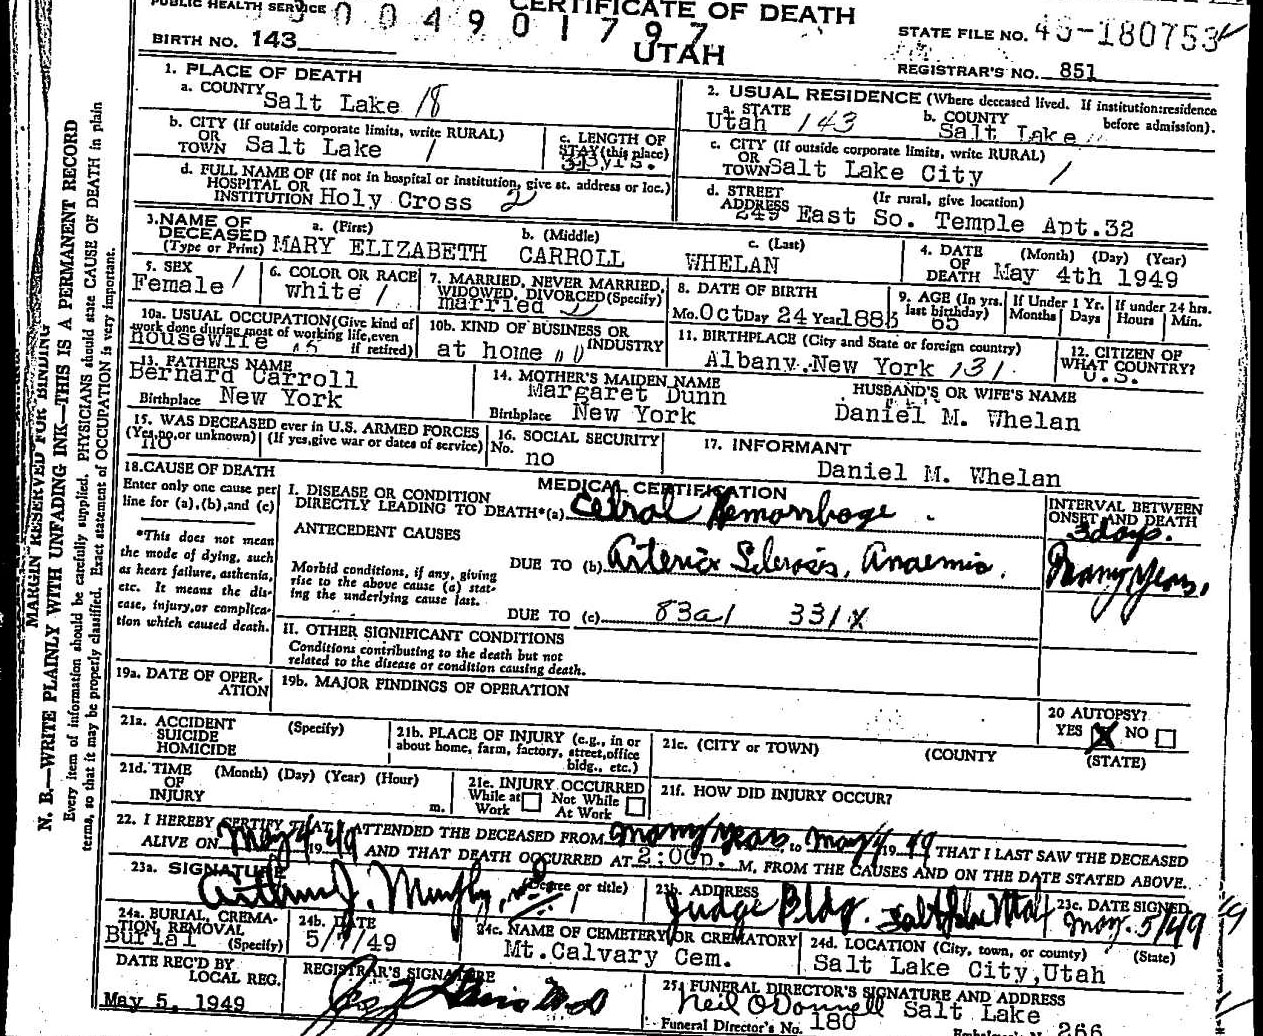 PUBLIC HEALTH SERVICE
CERTIFICATE OF DEATH
004901797
UTAH
STATE FILE NO. 49-180753
BIRTH NO. 143
REGISTRAR'S NO. 851
MARGIN RESERVED FOR BINDING
N. B.—WRITE PLAINLY WITH UNFADING INK—THIS IS A PERMANENT RECORD
Every item of information should be carefully supplied. PHYSICIANS should state CAUSE OF DEATH in plain
terms, so that it may be properly classified. Exact statement of OCCUPATION is very important.
1. PLACE OF DEATH
a. COUNTY Salt Lake 18
2. USUAL RESIDENCE (Where deceased lived. If institution:residence before admission).
a. STATE Utah 143
b. COUNTY Salt Lake
b. CITY (If outside corporate limits, write RURAL) OR TOWN Salt Lake 1
c. LENGTH OF STAY(this place) yrs.
c. CITY (If outside corporate limits, write RURAL) OR TOWN Salt Lake City 1
d. FULL NAME OF (If not in hospital or institution, give st. address or loc.) HOSPITAL OR INSTITUTION Holy Cross 2
d. STREET ADDRESS (If rural, give location) 249 East So. Temple Apt.32
3. NAME OF DECEASED (Type or Print)
a. (First) MARY ELIZABETH
b. (Middle) CARROLL
c. (Last) WHELAN
4. DATE OF DEATH (Month) (Day) (Year) May 4th 1949
5. SEX Female 1
6. COLOR OR RACE white 1
7. MARRIED, NEVER MARRIED, WIDOWED, DIVORCED(Specify) married
8. DATE OF BIRTH Mo. Oct Day 24 Year 188
9. AGE (In yrs. last birthday) 65
If Under 1 Yr. Months Days
If under 24 hrs. Hours Min.
10a. USUAL OCCUPATION(Give kind of work done during most of working life,even if retired) housewife
10b. KIND OF BUSINESS OR INDUSTRY at home
11. BIRTHPLACE (City and State or foreign country) Albany.New York 131
12. CITIZEN OF WHAT COUNTRY? U.S.
13. FATHER'S NAME Bernard Carroll
Birthplace New York
14. MOTHER'S MAIDEN NAME Margaret Dunn
Birthplace New York
HUSBAND'S OR WIFE'S NAME Daniel M. Whelan
15. WAS DECEASED ever in U.S. ARMED FORCES (Yes,no,or unknown) (If yes,give war or dates of service) no
16. SOCIAL SECURITY No. no
17. INFORMANT Daniel M. Whelan
MEDICAL CERTIFICATION
18.CAUSE OF DEATH
Enter only one cause per line for (a),(b),and (c)
*This does not mean the mode of dying, such as heart failure, asthenia, etc. It means the disease, injury,or complication which caused death.
I. DISEASE OR CONDITION DIRECTLY LEADING TO DEATH*(a) Cebral Hemorrhage
INTERVAL BETWEEN ONSET AND DEATH 3 days.
ANTECEDENT CAUSES
Morbid conditions, if any, giving rise to the above cause (a) stating the underlying cause last.
DUE TO (b) Arterio Sclerosis, Anaemia.
Many Years.
DUE TO (c) 83a1 331X
II. OTHER SIGNIFICANT CONDITIONS
Conditions contributing to the death but not related to the disease or condition causing death.
19a. DATE OF OPERATION
19b. MAJOR FINDINGS OF OPERATION
20 AUTOPSY?
YES X NO
21a. ACCIDENT SUICIDE HOMICIDE (Specify)
21b. PLACE OF INJURY (e.g., in or about home, farm, factory, street,office bldg., etc.)
21c. (CITY or TOWN) (COUNTY) (STATE)
21d. TIME OF INJURY (Month) (Day) (Year) (Hour) m.
21e. INJURY OCCURRED While at Work Not While At Work
21f. HOW DID INJURY OCCUR?
22. I HEREBY CERTIFY THAT I ATTENDED THE DECEASED FROM many years, to May 4 19 49 THAT I LAST SAW THE DECEASED
ALIVE ON May 4 19 49 AND THAT DEATH OCCURRED AT 2:00p. M, FROM THE CAUSES AND ON THE DATE STATED ABOVE.
23a. SIGNATURE (Degree or title) Arthur J. Murphy, MD 1
23b. ADDRESS Judge Bldg. Salt Lake
23c. DATE SIGNED May. 5/49
24a. BURIAL, CREMATION, REMOVAL (Specify) Burial
24b. DATE 5/7/49
24c. NAME OF CEMETERY OR CREMATORY Mt.Calvary Cem.
24d. LOCATION (City, town, or county) (State) Salt Lake City,Utah
DATE REC'D BY LOCAL REG. May 5, 1949
REGISTRAR'S SIGNATURE
25. FUNERAL DIRECTOR'S SIGNATURE AND ADDRESS
Neil O'Donnell Salt Lake
Funeral Director's No. 180
266